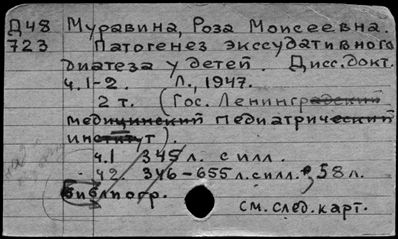 Д48 Муравина, Роза Моисеевна.
723 Патогенез экссудативного
диатеза у детей. Дисс. докт.
ч.1-2. Л., 1947.
2 т. (Гос. Ленинградский
медицинский педиатрический
институт).
ч.1 345 л. с илл.
ч2. 346-655 л. с илл. 58 л.
библиогр.
см. след. карт.